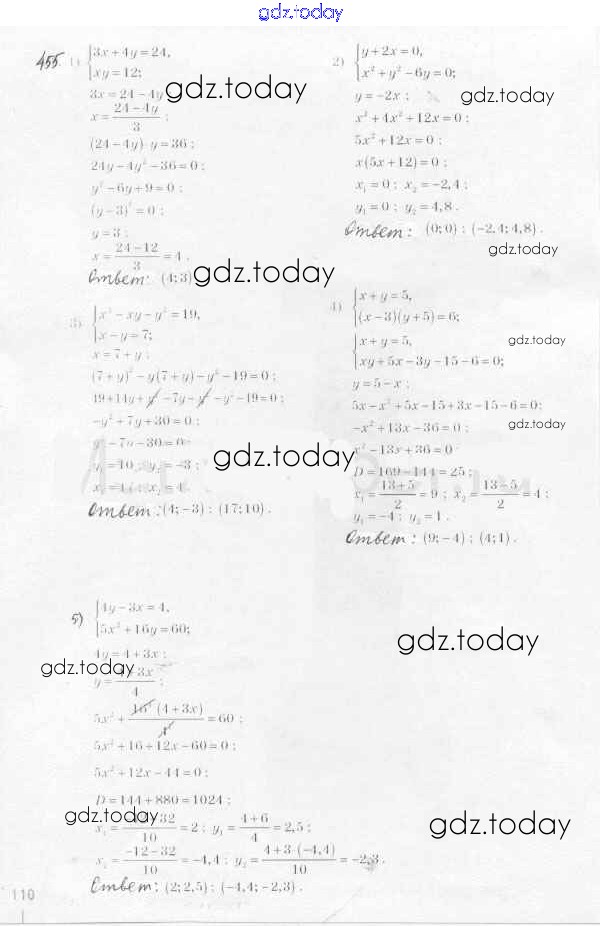 gdz.today
455. 1) {3x+4y=24,
xy=12;
3x=24-4y
x=(24-4y)/3 ;
(24-4y)·y=36 ;
24y-4y²-36=0 ;
y²-6y+9=0 ;
(y-3)²=0 ;
y=3 ;
x=(24-12)/3=4 .
Ответ: (4;3)
gdz.today
gdz.today
2) {y+2x=0,
x²+y²-6y=0;
y=-2x ;
gdz.today
x²+4x²+12x=0 ;
5x²+12x=0 ;
x(5x+12)=0 ;
x₁=0 ; x₂=-2,4 ;
y₁=0 ; y₂=4,8 .
Ответ: (0;0) ; (-2,4; 4,8) .
gdz.today
3) {x²-xy-y²=19,
x-y=7;
x=7+y ;
(7+y)²-y(7+y)-y²-19=0 ;
49+14y+y²-7y-y²-y²-19=0 ;
-y²+7y+30=0 ;
y²-7y-30=0
y₁=10 ; y₂=-3 ;
x₁=17 ; x₂=4
gdz.today
Ответ: (4;-3) ; (17;10) .
4) {x+y=5,
(x-3)(y+5)=6;
gdz.today
{x+y=5,
xy+5x-3y-15-6=0;
y=5-x ;
5x-x²+5x-15+3x-15-6=0;
gdz.today
-x²+13x-36=0 ;
x²-13x+36=0
D=169-144=25 ;
x₁=(13+5)/2=9 ; x₂=(13-5)/2=4 ;
y₁=-4 ; y₂=1 .
Ответ: (9;-4) ; (4;1) .
5) {4y-3x=4,
5x²+16y=60;
gdz.today
4y=4+3x ;
gdz.today
y=(4+3x)/4 ;
5x²+16·(4+3x)/4=60 ;
5x²+16+12x-60=0 ;
5x²+12x-44=0 ;
D=144+880=1024 ;
gdz.today
gdz.today
x₁=(-12+32)/10=2 ; y₁=(4+6)/4=2,5 ;
x₂=(-12-32)/10=-4,4 ; y₂=(4+3·(-4,4))/10=-2,3 .
Ответ: (2; 2,5) ; (-4,4; -2,3) .
110